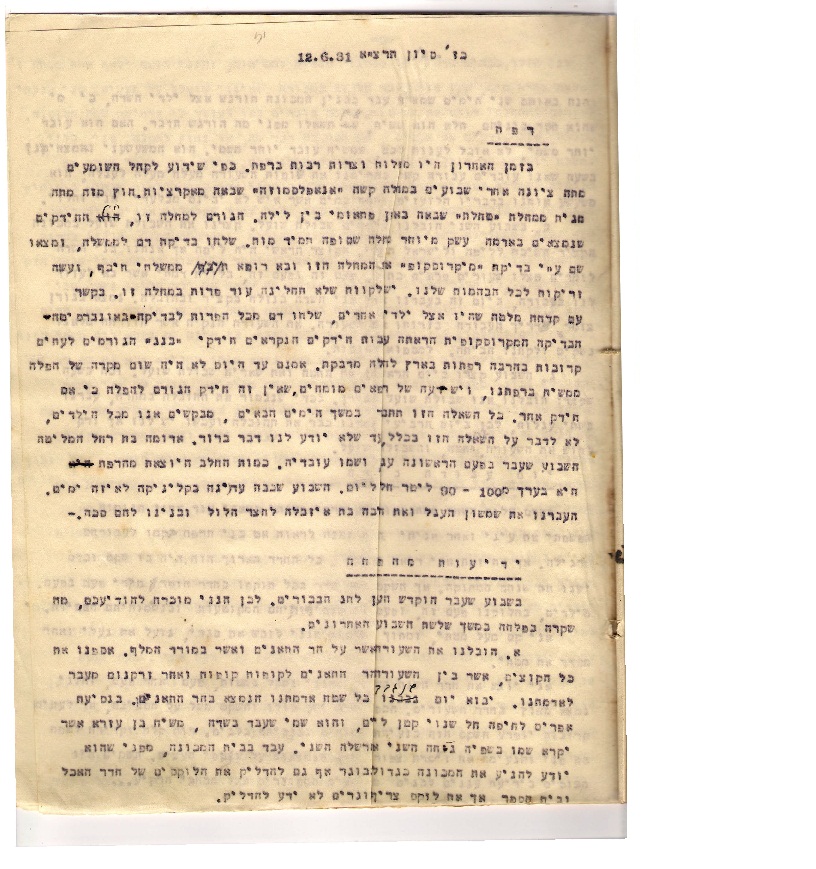 כז' סיון תרצ"א 12.6.31
רפת
בזמן האחרון היו מחלות וצרות רבות ברפת. כפי שידוע לקהל השומעים
מתה ציונה אחרי שבועים במחלה קשה "אנאפלסמוזה" שבאה מאקרציות. חוץ מזה מתה
מגית ממחלת "פחלת" שבאה באפן פתאומי בין לילה. הגורם למחלה זו, החידקים
שנמצאים באדמה עשק מיוחד מלה שסופה תמיד מות. שלחו בדיקת דם לממשלה, ומצאו
שם ע"י בדיקת "מיקרוסקופ" א המחלה הזו ובא רופא ממשלתי חיפה, ועשה
זריקות לכל הבהמות שלנו. יש לקוות שלא תחלינה עוד פרות במחלה זו. בקשר
עם קדחת מלטה שהיו אצל ילדי אחרים, שלחו דם מכל הפרות לבדיקה באוניברסיטה
הבדיקה המקרוסקופית הראתה עבות חידקים הנקראים חידקי "בנג" הגורמים לעתים
קרובות בהרבה רפתות בארץ לחלה מדבקת. אמנם עד היום לא היה שום מקרה של הפלה
ממשית ברפתנו, ויש דעה של רפאים מומחים, שאין זה חידק הגורם להפלה כי אם
חידק אחר. כל השאלה הזו תתבר במשך הימים הבאים, מבקשים אנו מכל הילדים,
לא לדבר על השאלה הזו בכלל עד שלא יודע לנו דבר ברור. אדומה בת רחל המליטה
השבוע שעבר בפעם הראשונה עגל ושמו עובדיה. כמות החלב היוצאת מהרפת
היא בערך 100 - 90 ליטר חלב ליום. השבוע שכבה עדינה בקליניקה לאיזה ימים.
העברנו את שמשון העגל ואת חבה בת איזבלה לחצר הלול ובנינו להם סככה.-
ידיעות מהפלחה
בשבוע שעבר הוקדש העתון לחג הבכורים. לכן הנני מוכרח להודיעכם, מה
שקרה בפלחה במשך שלשת השבוע האחרונים.
א. הובלנו את השעורה אשר על הר התאנים ואשר במורד המלף. אספנו את
כל הקוצים, אשר בין השעורה הר התאנים לקופות קופות ואחר זרקנום מעבר
לאדמתנו. יבוא יום שנגרף כל שטח אדמתנו הנמצא בהר התאנים. בנסיעת
אפרים לחיפה חל שנוי קטן ל"ם, והוא שמי שעבד בשדה, משיח בן עזרא אשר
יקרא שמו בשפיה נחה השני ארשלה השני. עבד בבית המכונה, מפני שהוא
יודע להניע את המכונה כגדול כבוגר אף גם להדליק את הלוקסים של חדר האכל
ובית הספר אך את לוקס צריף וגדים לא ידע להדליק.